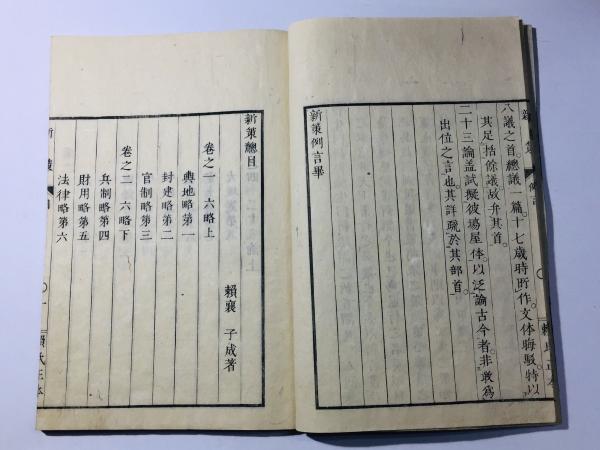 八議之首。總議一篇。十七歳時所作。文体晦駁。特以
其足括餘議。故弁其首。
二十三論。盖試擬彼場屋体。以泛論古今者。非敢爲
出位之言也。其詳疏於其部首。
新策例言畢
新策總目
賴襄 子成著
卷之一 六略上
輿地略第一
封建略第二
官制略第三
卷之二 六略下
兵制略第四
財用略第五
法律略第六